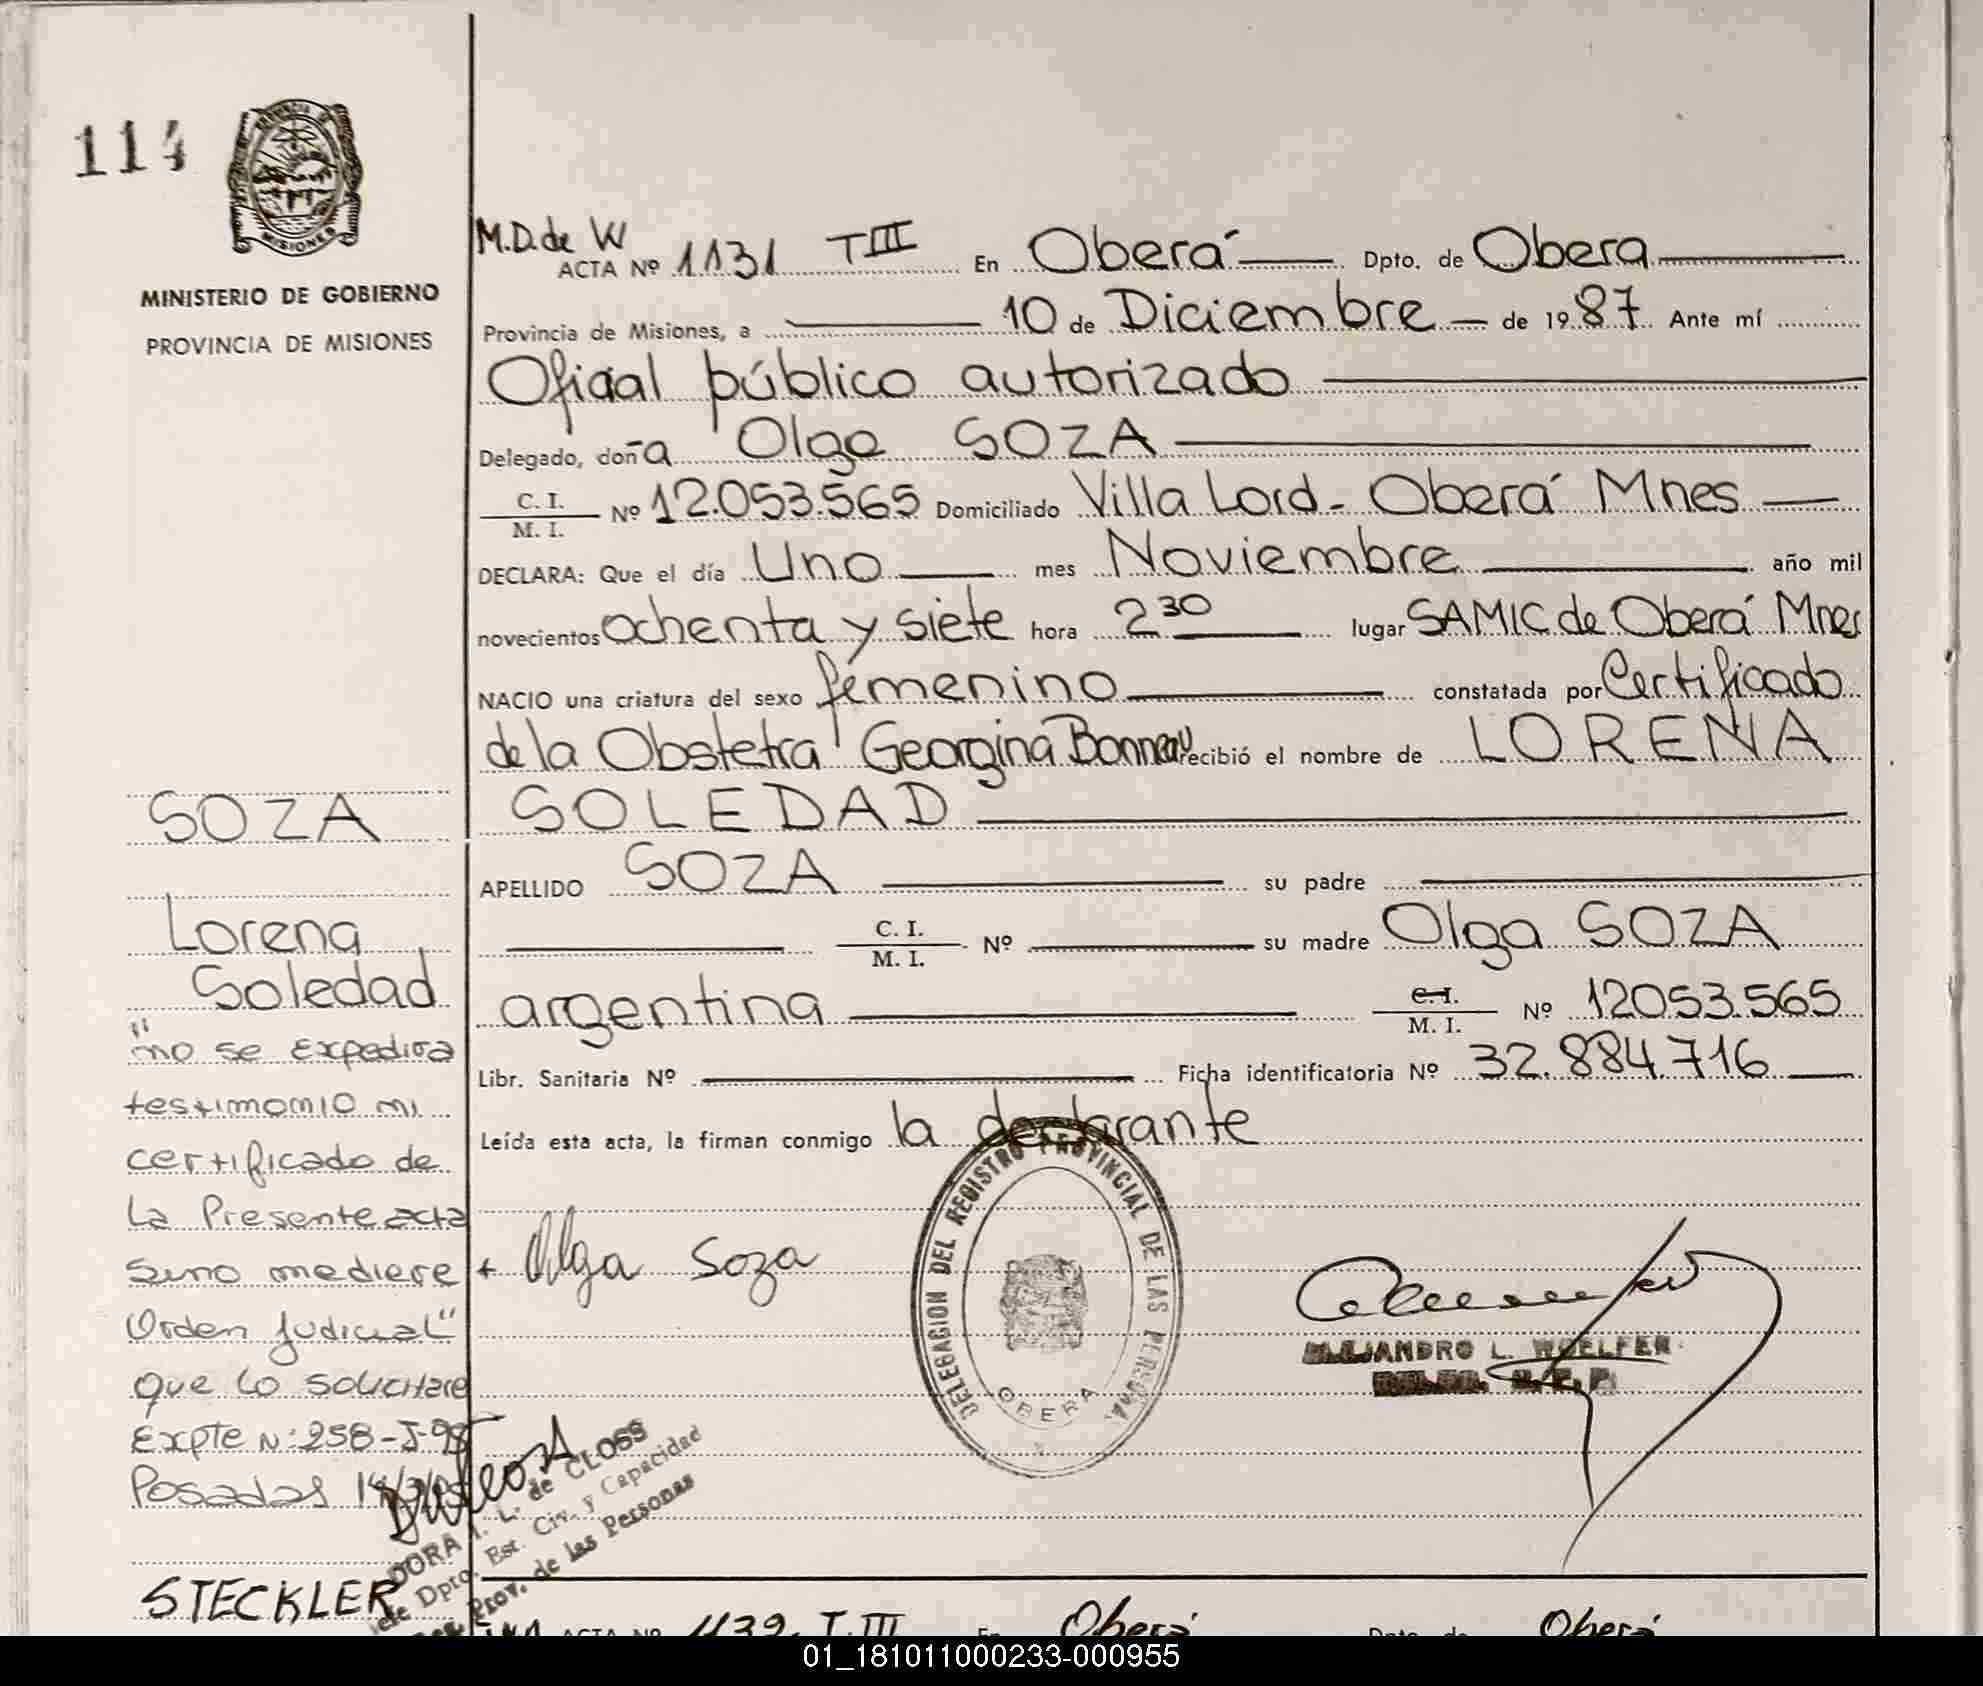 114
MINISTERIO DE GOBIERNO
PROVINCIA DE MISIONES
MISIONES
M.D. de W
ACTA Nº 1131 TIII En Oberá Dpto. de Obera
Provincia de Misiones, a 10 de Diciembre de 1987 Ante mí
Oficial público autorizado
Delegado, doña Olga SOZA
C. I.
M. I. Nº 12.053.565 Domiciliado Villa Lord - Oberá Mnes
DECLARA: Que el día Uno mes Noviembre año mil
novecientos ochenta y siete hora 2 30 lugar SAMIC de Oberá Mnes
NACIO una criatura del sexo femenino constatada por Certificado
de la Obstetra Georgina recibió el nombre de LORENA
SOLEDAD
APELLIDO SOZA su padre
C. I.
M. I. Nº su madre Olga SOZA
argentina C. I.
M. I. Nº 12053.565
Libr. Sanitaria Nº Ficha identificatoria Nº 32.884.716
Leída esta acta, la firman conmigo la declarante
SOZA
Lorena
Soledad
"no se expedira
testimonio ni
certificado de
la Presente acta
sino mediere
Orden Judicial"
que lo solicitare
Expte Nº 258-J-95
Posadas
+ Olga Soza
DELEGACION DEL REGISTRO PROVINCIAL DE LAS PERSONAS
OBERA
ALEJANDRO L. WOELFER
DORA I. L. de CLOSS
Jefe Dpto. Est. Civ. y Capacidad
Reg. Prov. de las Personas
STECKLER
ACTA Nº 1132 T.III En Oberá Dpto. de Oberá
01_181011000233-000955